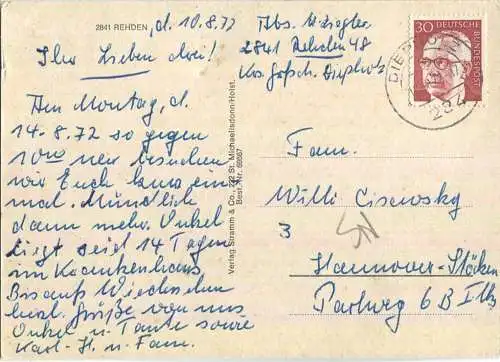 2841 REHDEN, d. 10.8.72
Ihr Lieben drei!
Am Montag, d.
14.8.72 so gegen
10 Uhr besuchen
wir Euch kurz ein
mal. Mündlich
dann mehr. Onkel
liegt seid 14 Tagen
im Krankenhaus
Bis auf Wiedersehen
herzl. Grüße von uns
Onkel u. Tante sowie
Karl-H. u. Fam.
Verlag Stramm & Co., 222 St. Michaelisdonn/Holst.
Best. Nr. 68667
Abs. W. Ziegler
2841 Rehden 48
Krs. Grfsch. Diepholz
30 DEUTSCHE
BUNDESPOST
DIEPHOLZ
284
Fam.
Willi
3
Hannover-Stöcken
Parlweg 6B